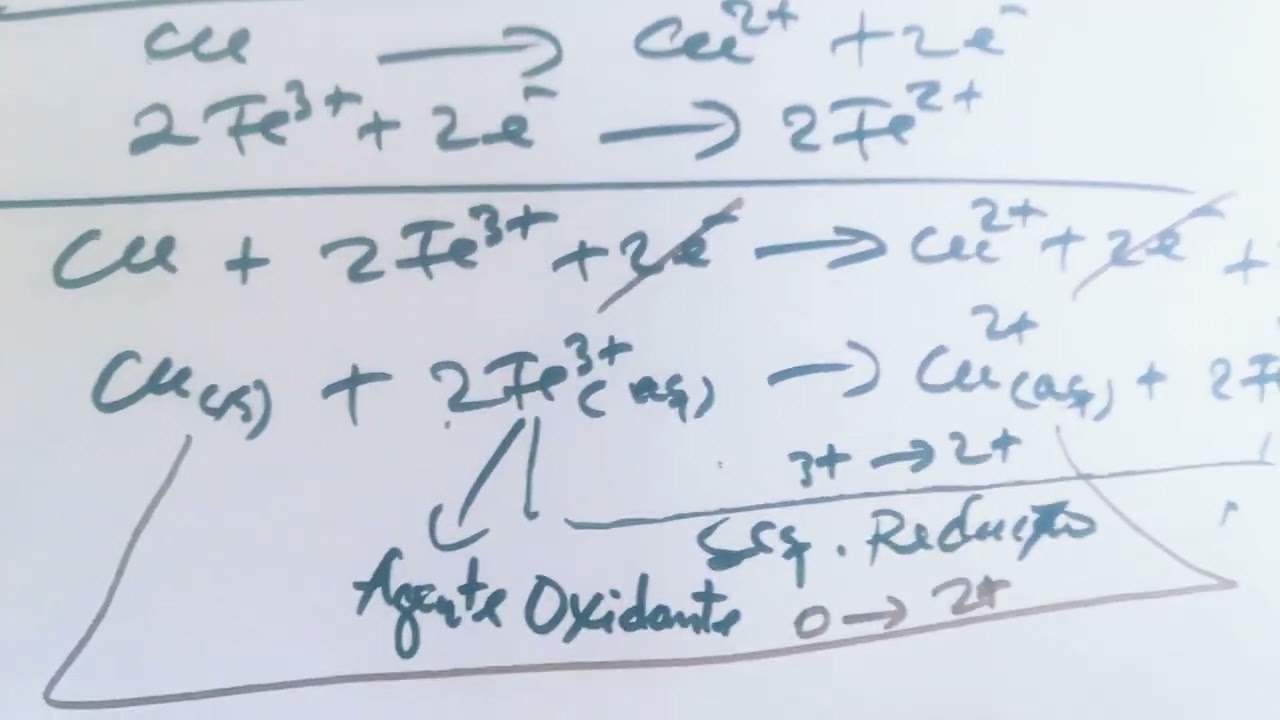 Cu → Cu²⁺ + 2e⁻
2Fe³⁺ + 2e⁻ → 2Fe²⁺
Cu + 2Fe³⁺ + 2e⁻ → Cu²⁺ + 2e⁻ +
Cu(s) + 2Fe³⁺(aq) → Cu²⁺(aq) + 2F
3+ → 2+
. Redução
Agente Oxidante 0 → 2+